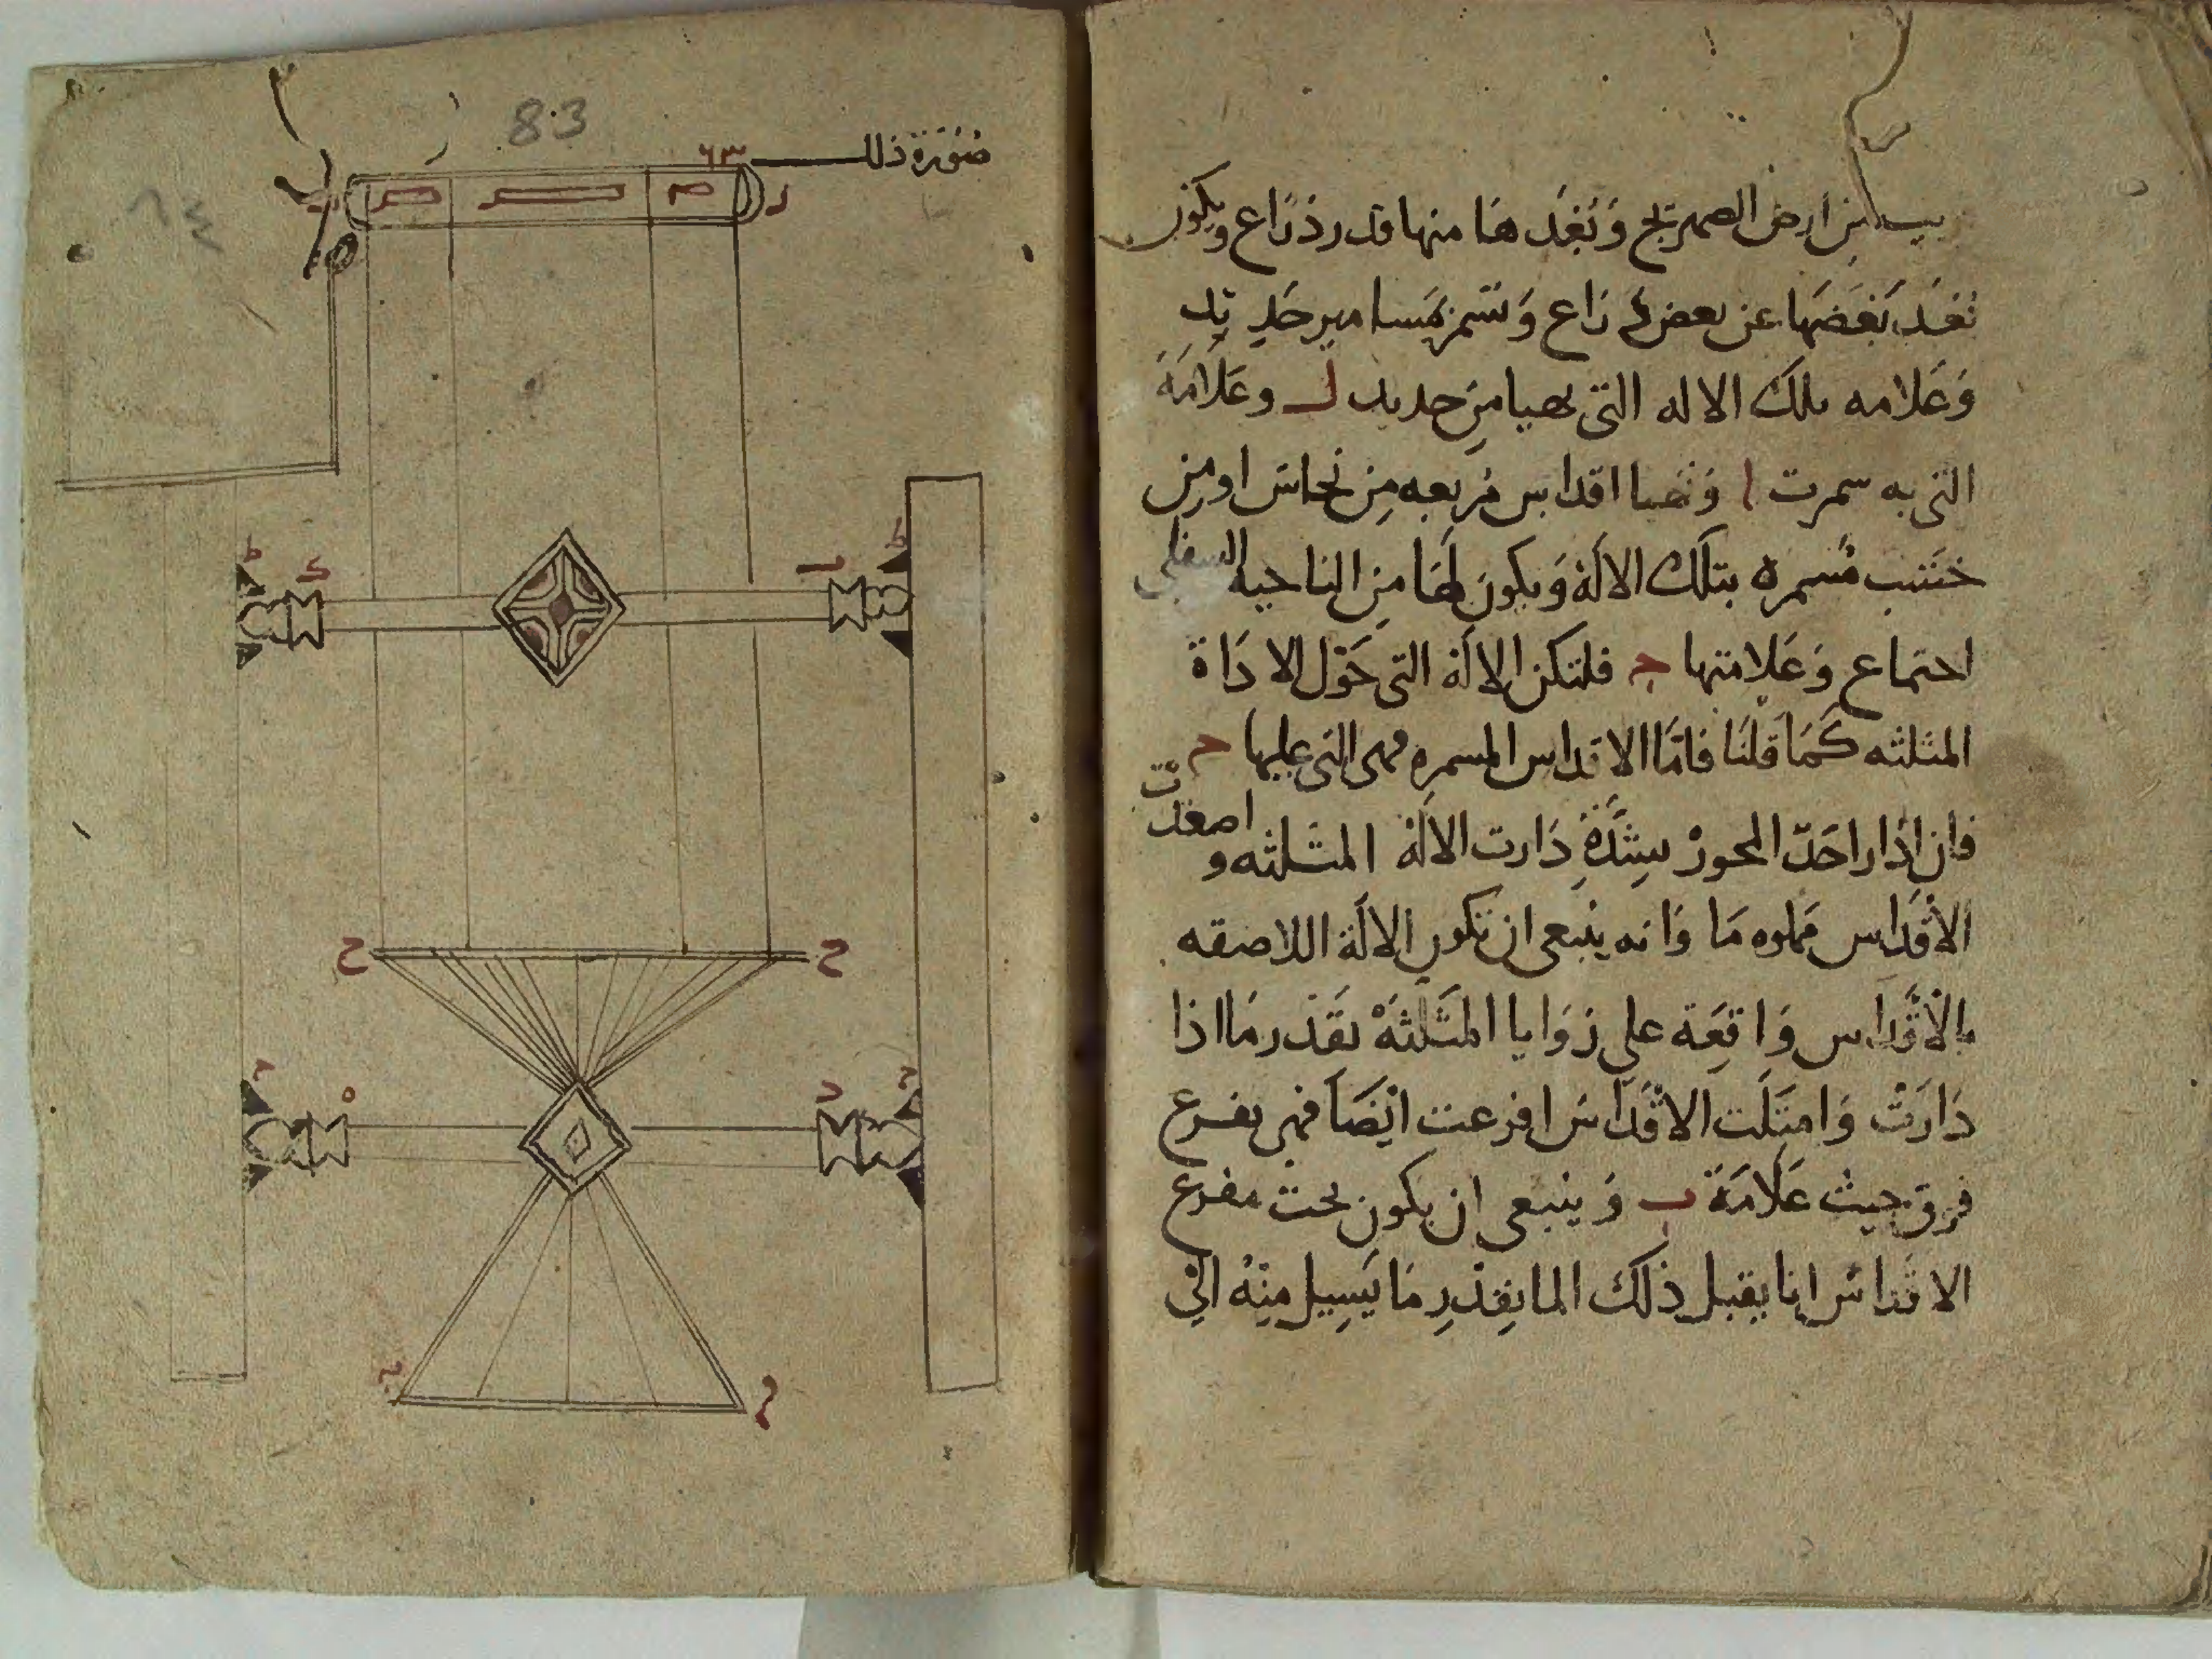 بين ارض الصهريج وَبُعْدهَا منها قدر ذراع ويكون
بُعْد بَعْضهَا عن بعض ذراع وَتسَمر بمسامير حَدِيد
وَعَلامه تلك الاله التى من حديد ل وعَلَامَة
التى به سمرت ا وَتهيا اقداس مُربعه مِن نحاس او من
خشب مُسمره بتلك الالَة وَيكون لهَا من الناحية السفلى
اجتماع وَعَلامتها ج فلتكن الالَة التى حَوْل الادَاة
المثلثه كَمَا قلنَا فامَّا الاقداس المسمره فهى التى عليها ح
فان اذار احَدٌ المحورْ بِشدَّةٍ دَارت الالَةْ المثلثه و اصعدت
الاقدَاس مملوه مَا وَانه ينبعى ان تكون الالَة اللاصقه
بالاقدَاس وَاقعَة على زوَايا المثَلثهْ بقَدر مَا اذا
دَارَتْ وَامتَلَت الاقْدَاس افرعت ايْضَا فهى تفرع
فوق حيث عَلَامَة ب وَينبعى ان يكون تحت مفرع
الاقداس انا يقبل ذلك الما بقدر مَا يَسِيل مِنْهُ الى
صُوْرَة ذلك
83
٦٤
ح
ح